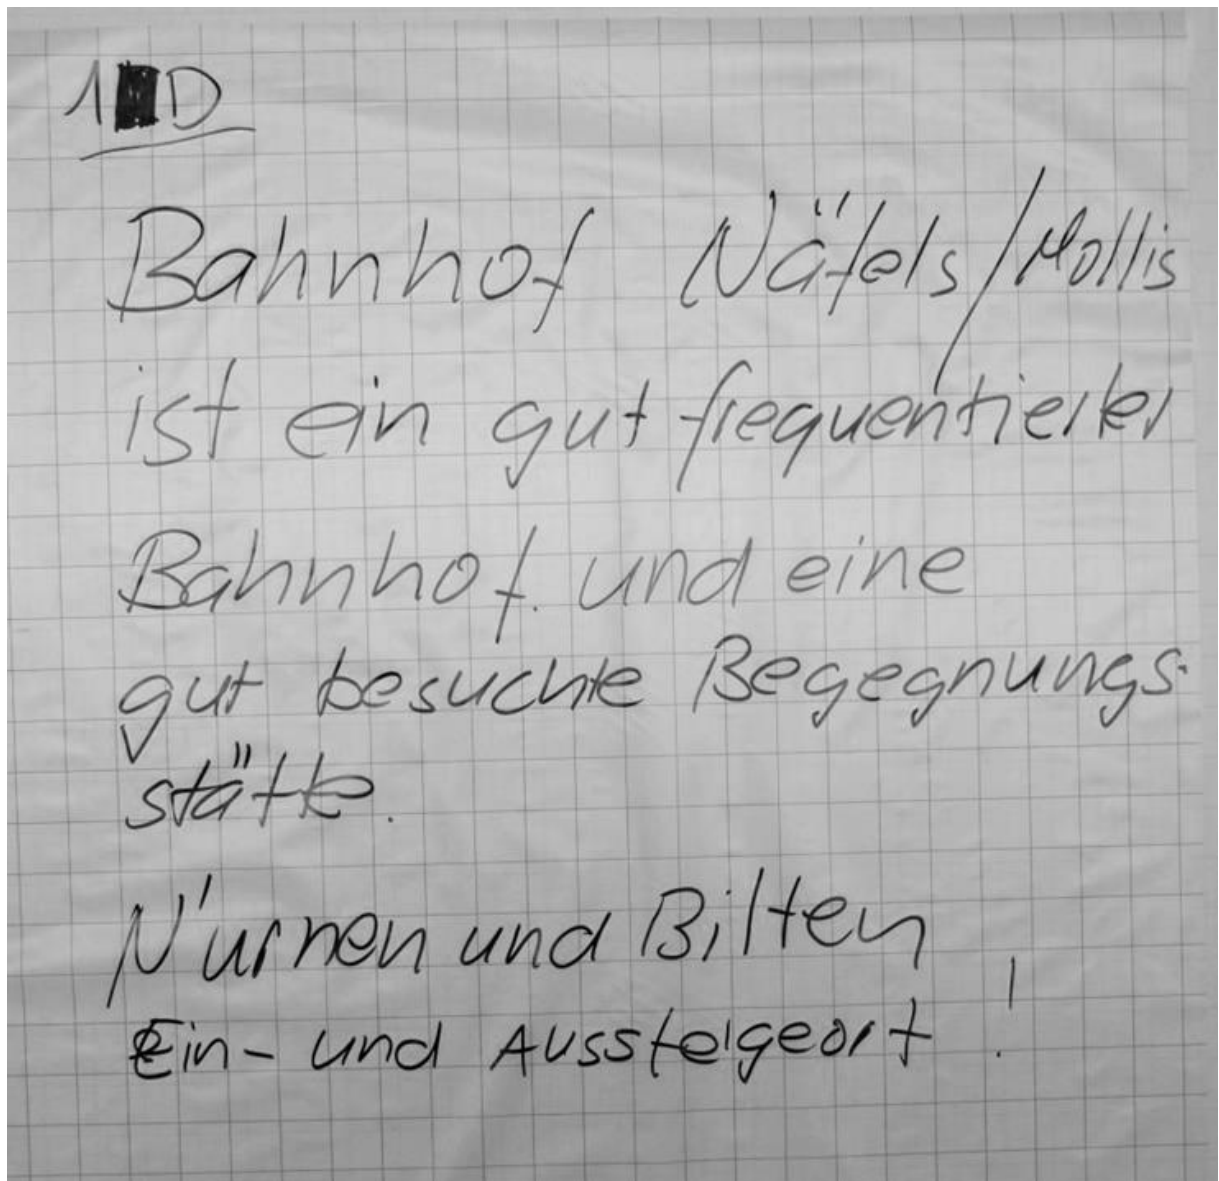 1 D
Bahnhof Näfels/Mollis
ist ein gut frequentierter
Bahnhof. und eine
gut besuchte Begegnungs-
stätte.
N'urnen und Bilten
Ein- und Aussteigeort !